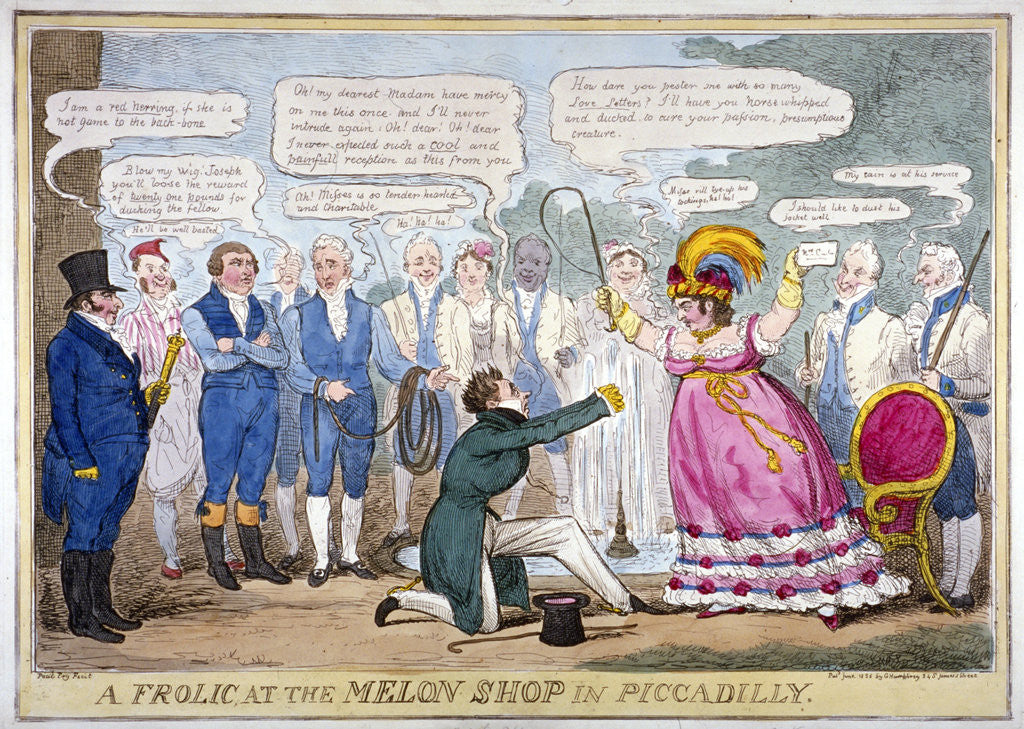 I am a red herring, if she is
not game to the back-bone
Blow my Wig! Joseph
you'll loose the reward
of twenty one pounds for
ducking the fellow
He'll be well basted
Oh! my dearest Madam have mercy
on me this once and I'll never
intrude again! Oh! dear! Oh! dear
I never expected such a cool and
painfull reception as this from you
Ah! Misses is so tender hearted
and Charitable
Ha! Ha! ha!
How dare you pester me with so many
Love Letters? I'll have you horse whipped
and ducked to cure your passion, presumptious
creature.
Misse vill tye up his
tockings, ha! ha!
My cain is at his service
I should like to dust his
Jacket well
Paul Pry Fecit
Pub. June 1826 by G Humphrey 24 St James's Street
A FROLIC, AT THE MELON SHOP IN PICCADILLY.